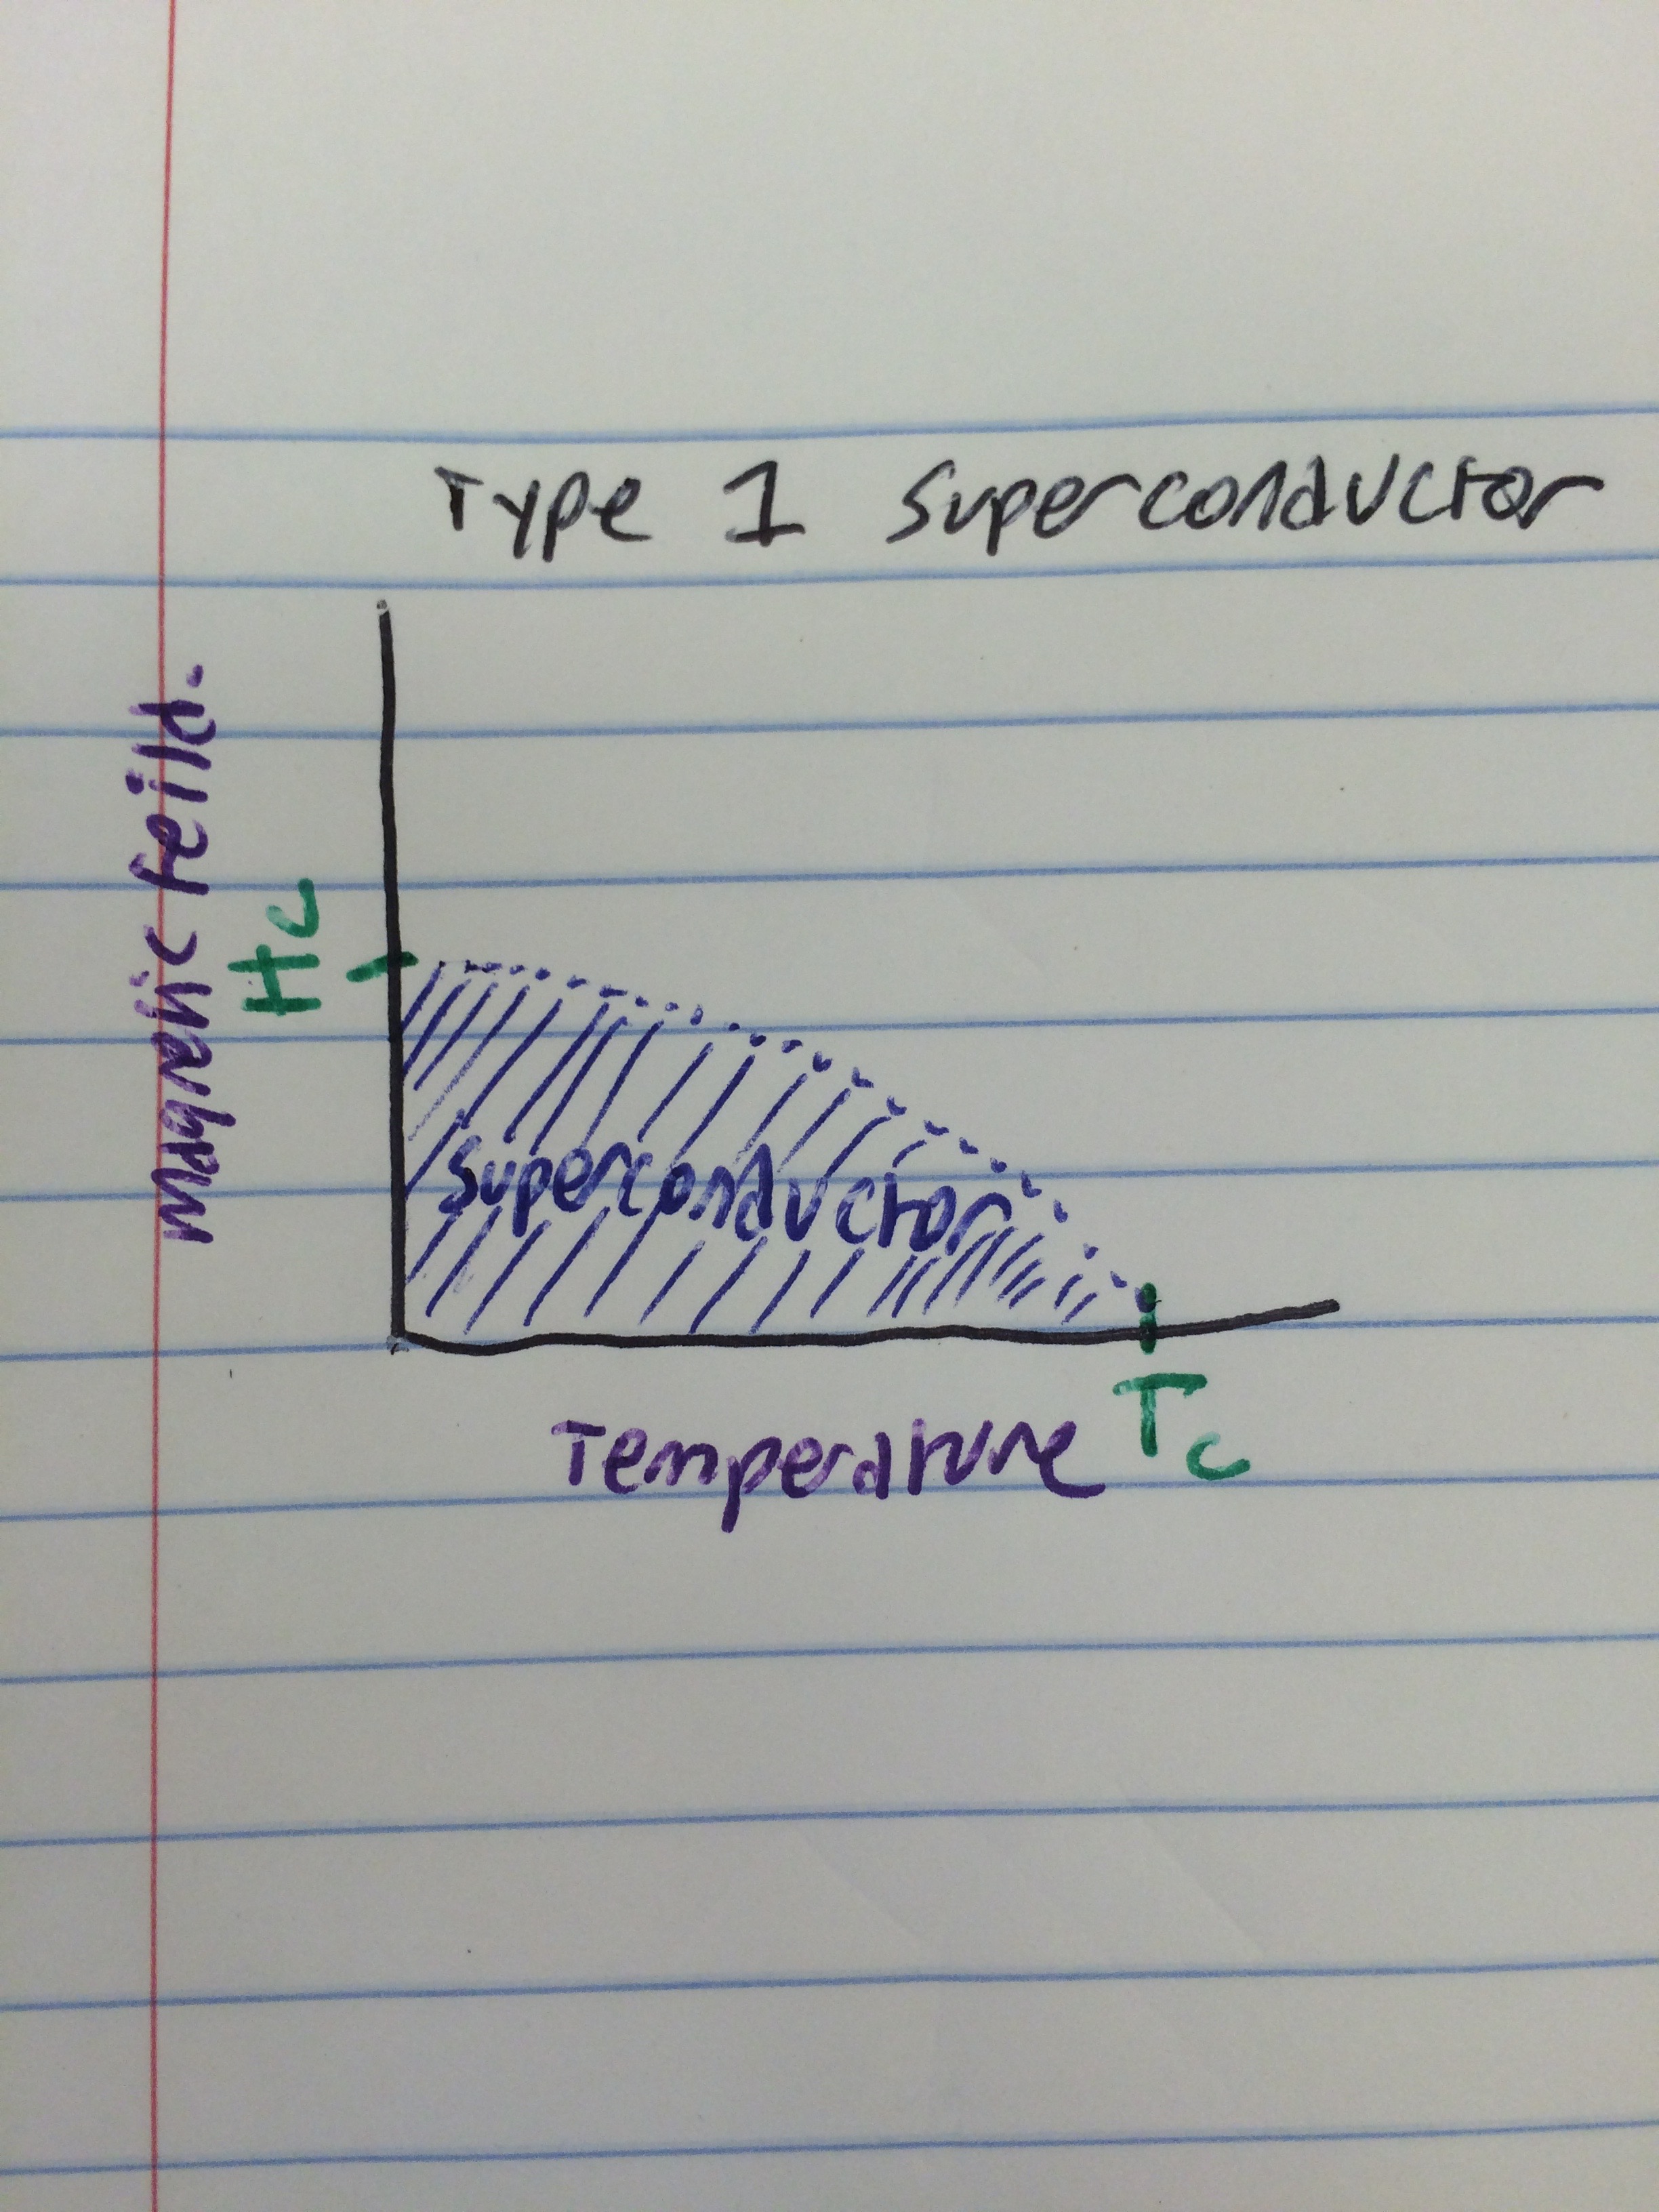 Type 1 superconductor
Magnetic feild.
Hc
superconductor
Temperature
Tc